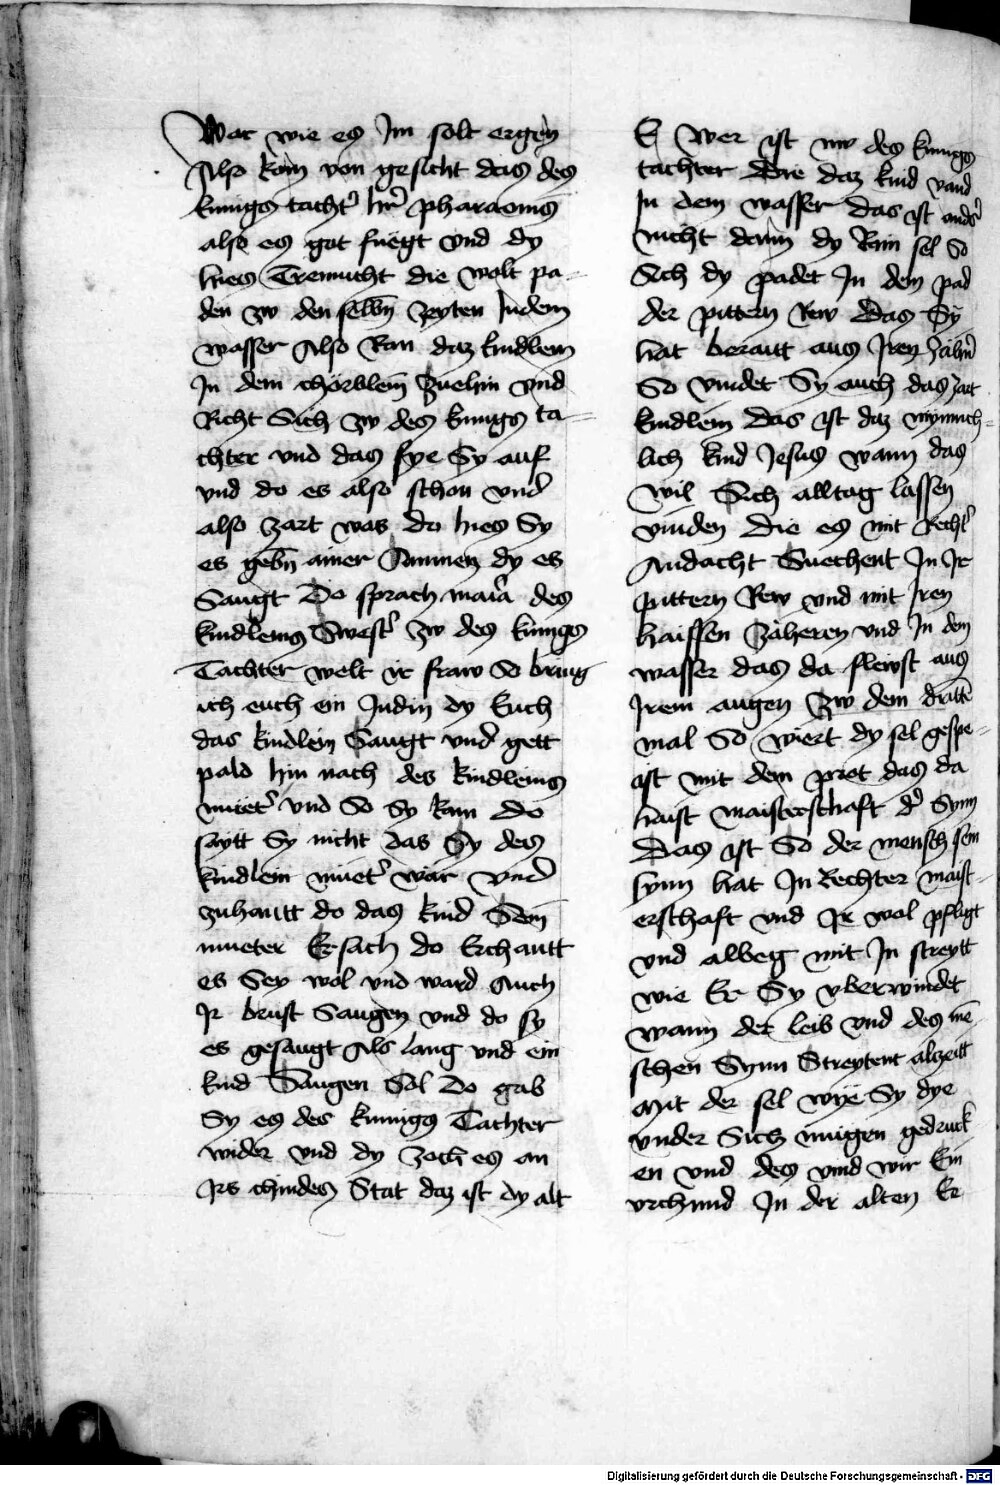 War wie es Im solt ergen
Also kom von geschicht das des
kunigs tacht' hr̄ pharaonis
also es got fuegt vnd dy
hies Tremucht die wolt pa-
den zw den selbn̄ zeyten Indem
wasser Also Ran daz kindlein
In dem chörblein zuehin vnd
Richt Sich zw des kunigs ta-
chter vnd das fye Sy auf
vnd do es also schon vnd
also zart was do hies Sy
es gebn̄ ainer Ammen dy es
Saugt Do sprach maria des
kindleins Swest' zw des kunigs
Tachter welt ir fraw So bring
ich euch ein Judin dy Euch
das kindlein Saugt vnd gett
pald hin nach des kindleins
muet' vnd So Sy kam do
saytt Sy nicht das Sy des
kindlein muet' wär vnd
zuhantt do das kind Sein
mueter Ersach do Erchantt
es Sey wol vnd ward Auch
Ir brust Saugen vnd do sy
es gesaugt Als lang vnd ein
kind Saugen Sol do gab
Sy es des kunigs Tachter
wider vnd dy zoch es an
Irs chindes Stat daz ist dy alt
E wer ist nw des kunigs
tachter Die daz kind vand
In dem wasser das ist and'
nicht dann dy Rain sel So
Sich dy padet In dem pad
der pittern Rew Das Sy
hat berautt aus Iren Zähn̄
So vindet Sy auch das zart
kindlein Das ist daz mynnich-
lich kind Jesus wann das
wil Sich alltag lassen
vinden Die es mit Recht'
Andacht Suechent In Ir
pittern Rew vnd mit Iren
haissen Zäheren vnd In dem
wasser das da flewst aus
Irem augen Zw dem dritt̄e
mal So wiert dy sel gespe-
ist mit dem prot das da
haist maisterschaft d' Synn
Das ist So der mensch sein
synn hat In Rechter maist-
erschaft vnd Ir wol pfligt
vnd alweg mit In streytt
wie Er Sy vberwindet
wann der leib vnd des me-
schen Synn Streytent alzeitt
Mit der sel wye Sy dye
vnder Sich mugen gedruck
en vnd des vind wir Ein
vrchund In der alten Er